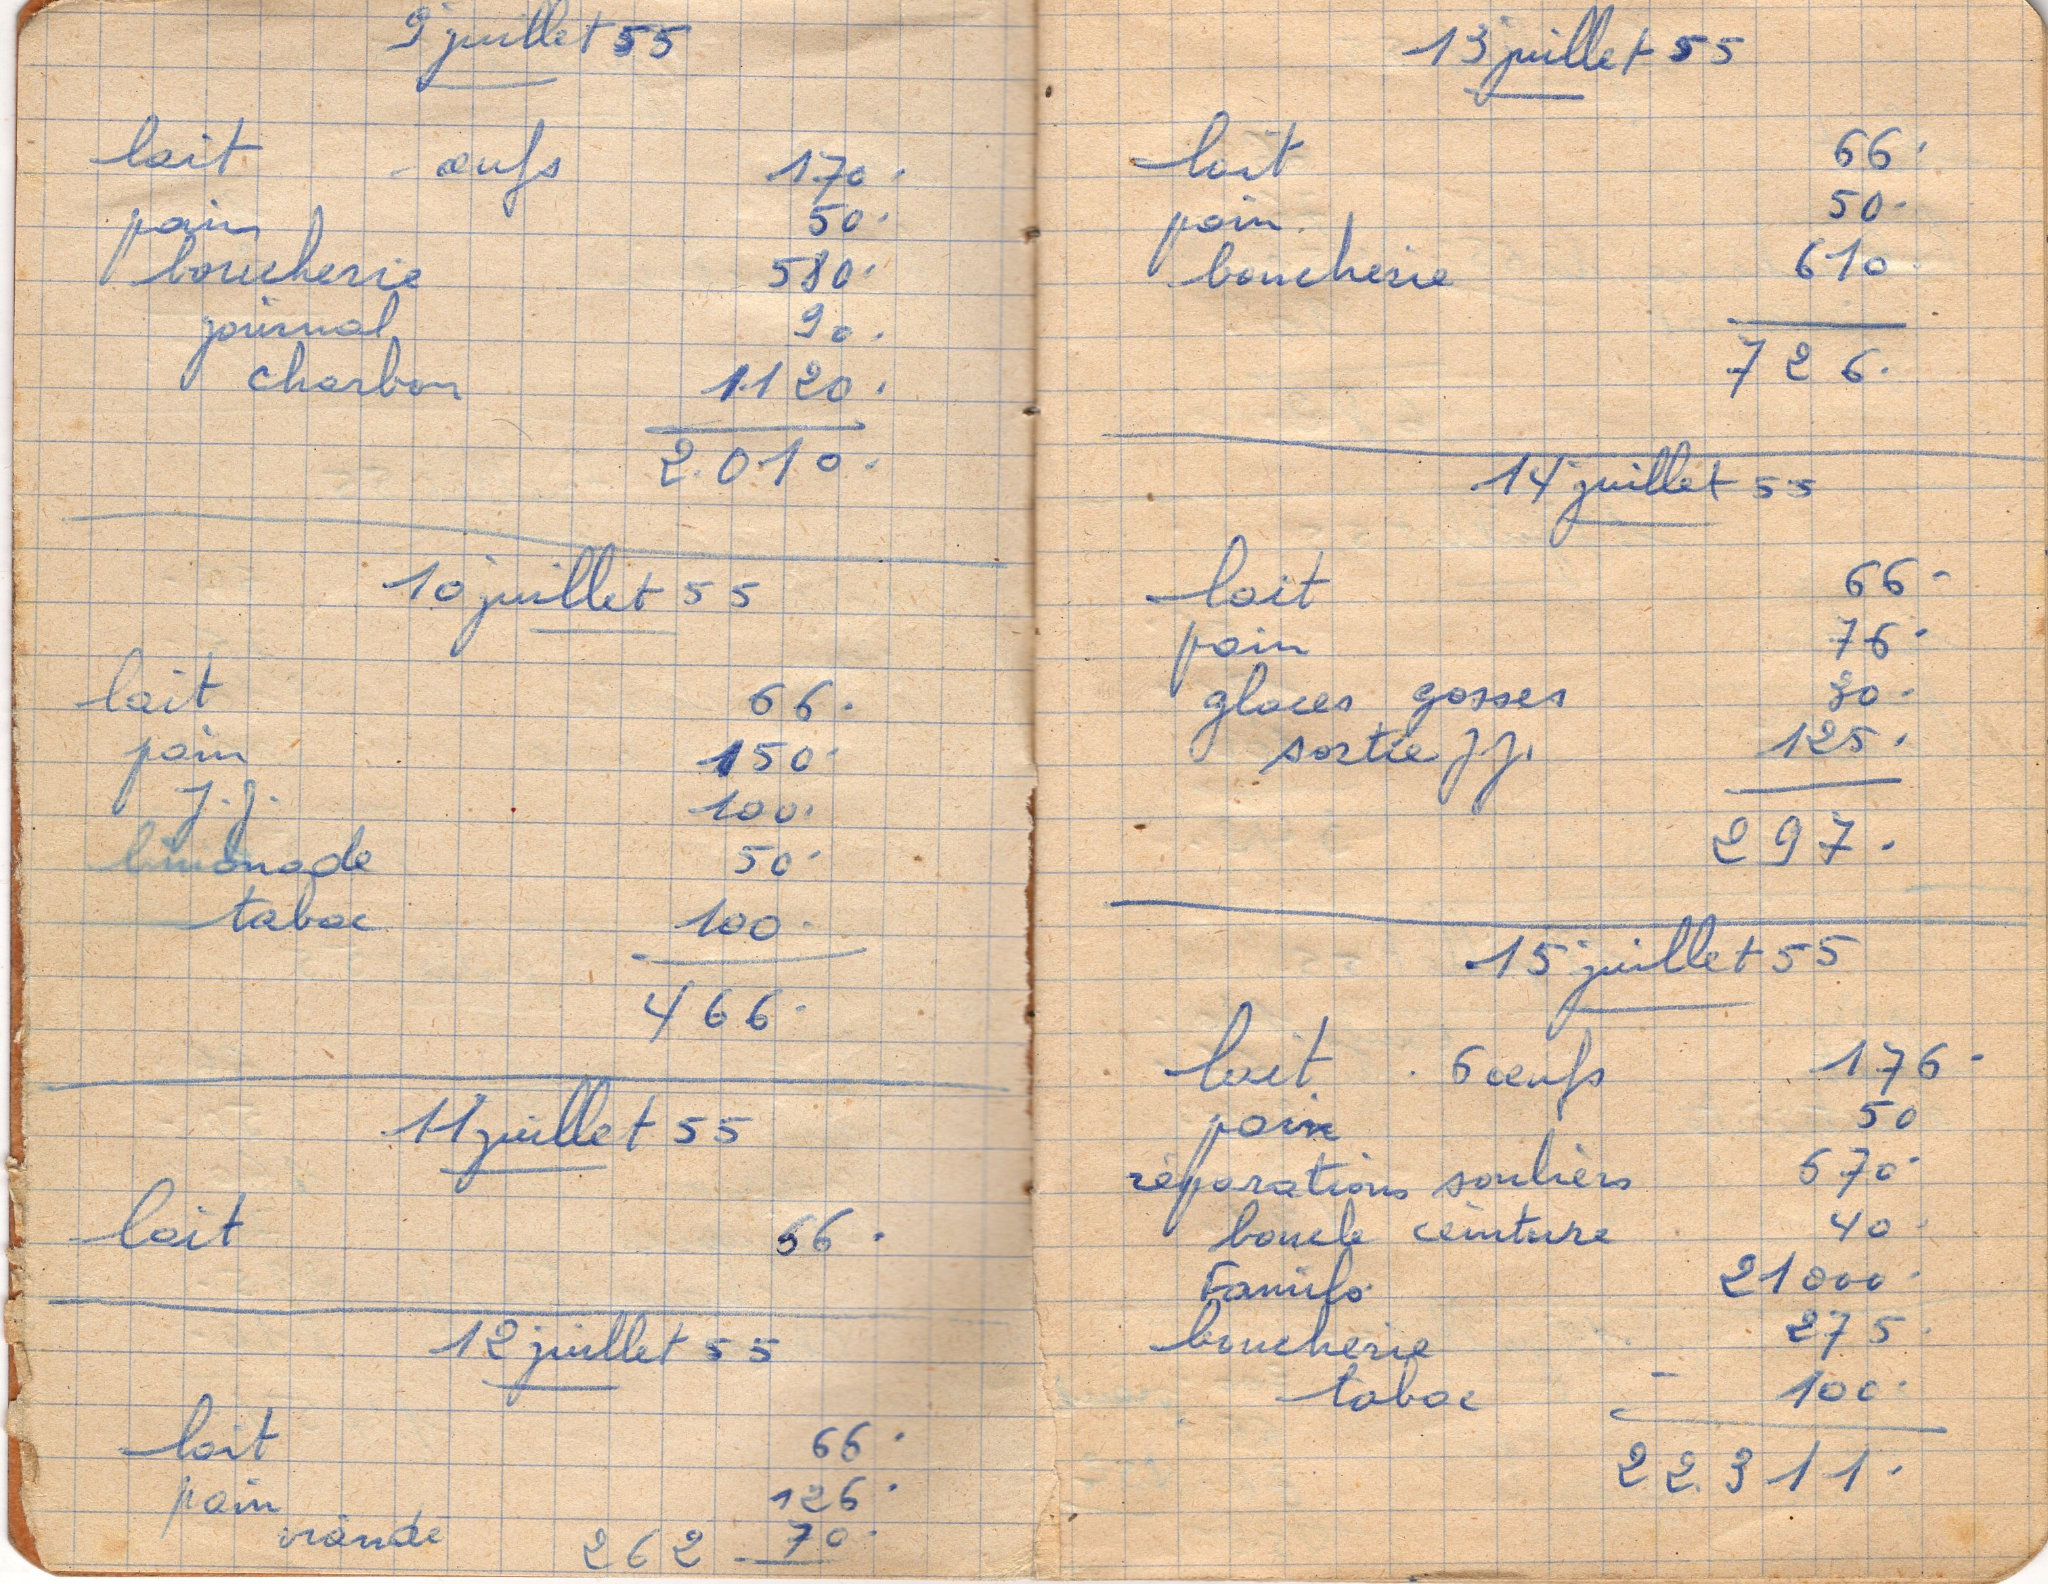 9 juillet 55
lait - œufs 170.
pain 50.
boucherie 580.
journal 90.
charbon 1.120.
2.010.
10 juillet 55
lait 66.
pain 150.
J.J. 100.
limonade 50.
tabac 100.
466.
11 juillet 55
lait 66.
12 juillet 55
lait 66.
pain 126.
viande 262 70.
13 juillet 55
lait 66.
pain 50.
boucherie 610.
726.
14 juillet 55
lait 66.
pain 76.
glaces gosses 30.
sortie J.J. 125.
297.
15 juillet 55
lait . 6 œufs 176.
pain 50
réparations souliers 670.
boucle ceinture 40.
21000.
boucherie 275.
tabac - 100.
22.311.